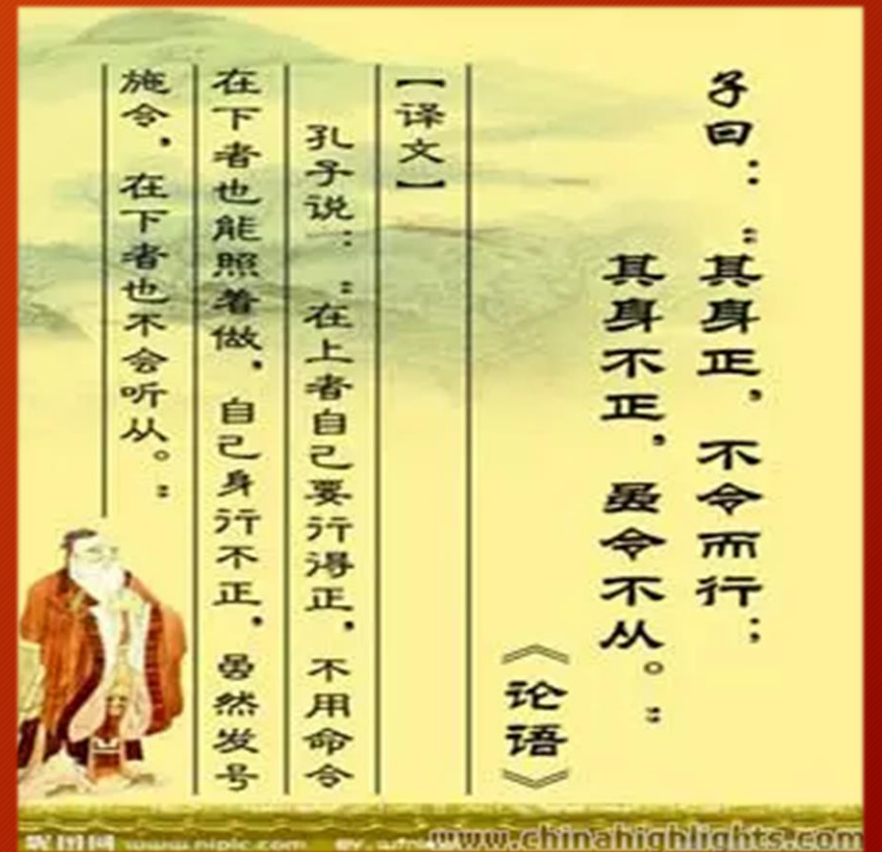 子曰：“其身正，不令而行；
其身不正，虽令不从。”
《论语》
【译文】
孔子说：“在上者自己要行得正，不用命令
在下者也能照着做，自己身行不正，虽然发号
施令，在下者也不会听从。”
昵图网 www.nipic.com
www.chinahighlights.com